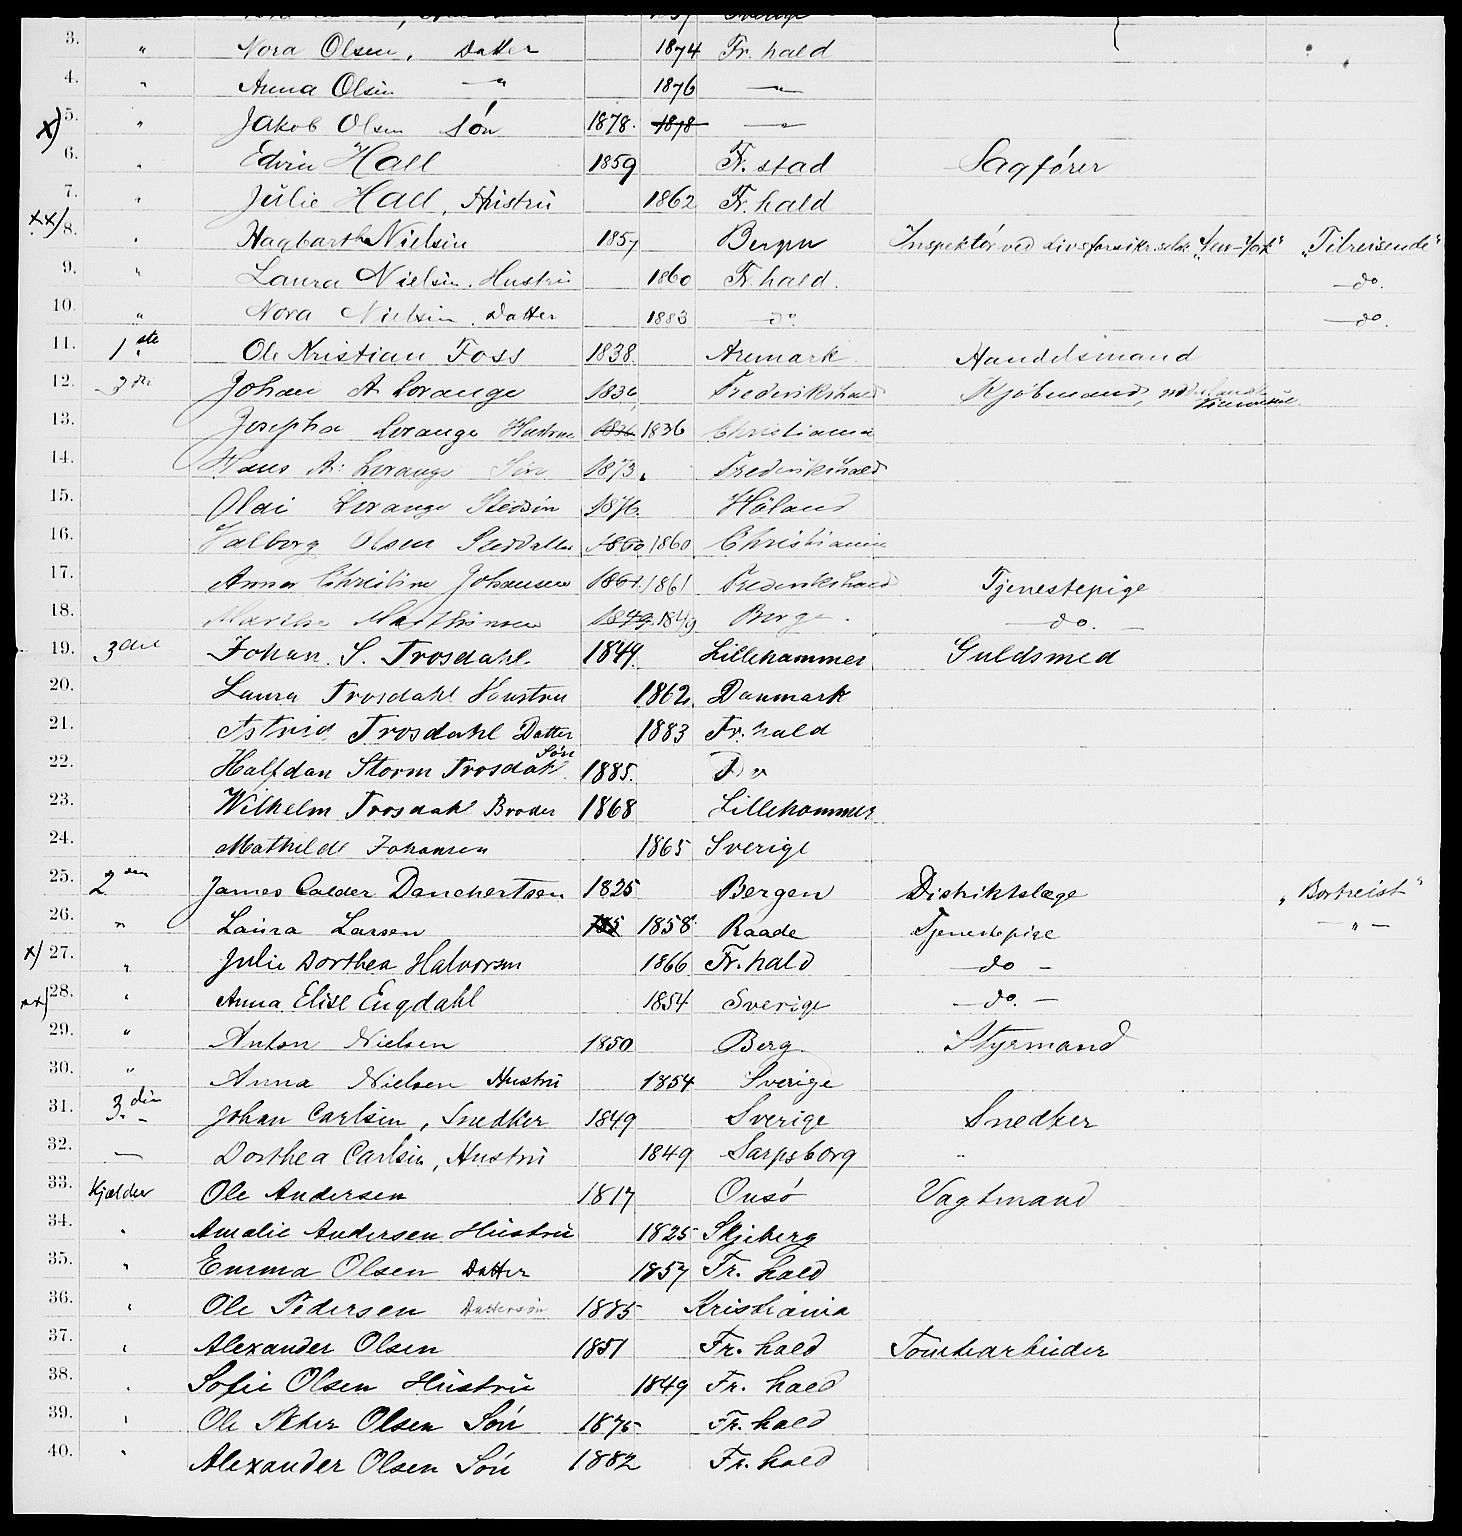 3. " Nora Olsen, Datter 1874 Fr. hald
4. " Anna Olsen —"— 1876 —"—
x) 5. " Jakob Olsen Søn 1878. 1878 —"—
6. " Edvin Hall 1859 Fr. stad Sagfører
7. " Julie Hall, Hustru 1862 Fr. hald
xx) 8. " Hagbarth Nielsen 1857 Bergen Inspektør ved livsforsikr.selsk. "New-York" "Tilreisende"
9. " Laura Nielsen, Hustru 1860 Fr. hald. —do.
10. " Nora Nielsen, Datter 1883 —do. —do.
11. 1ste " Ole Kristian Foss 1838. Aremark Handelsmand
12. 3die Johan A Lorange 1836 Frederikshald Kjøbmand,
13. Josepha Lorange Hustru 1836 1836 Christiania
14. Hans A: Lorange Søn 1873. Frederikshald
15. Olai Lorange Stedsøn 1876. Høland
16. Valborg Olsen Steddatter 1860 1860 Christiania
17. Anna Christine Johansen 1861. 1861 Frederikshald Tjenestepige
18. Marthe Mathisen 1849. 1849 Berg. —do.—
19. 3die Johan. S. Trosdahl. 1849. Lillehammer Guldsmed
20. Laura Trosdahl Houstru 1862. Danmark
21. Astrid Trosdahl Datter 1883 Fr. hald
22. Halfdan Storm Trosdahl Søn 1885. Do
23. Wilhelm Trosdahl Broder 1868 Lillehammer
24. Mathilde Johansen 1865 Sverige
25. 2den James Calder Danchertsen 1825 Bergen Distriktslæge "Bortreist"
26. " Laura Larsen 1858 Raade Tjenestepige —"—
x) 27. " Julie Dorthea Halvorsen 1866 Fr. hald —do—
xx) 28. " Anna Elise Engdahl 1854 Sverige —do.—
29. " Anton Nielsen 1850 Berg Styrmand
30. " Anna Nielsen Hustru 1854 Sverige
31. 3die Johan Carlsen, Snedker 1849 Sverige Snedker
32. — Dorthea Carlsen, Hustru 1849 Sarpsborg "
33. Kjælder Ole Andersen 1817 Onsø Vagtmand
34. " Amalie Andersen Hustru 1825 Skjeberg
35. " Emma Olsen Datter 1857 Fr. hald
36. " Ole Pedersen Dattersøn 1885 Kristiania
37. " Alexander Olsen 1851 Fr. hald Tomtearbeider
38. " Sofie Olsen Hustru 1849 Fr. hald
39. " Ole Peter Olsen Søn 1875 Fr. hald
40. " Alexander Olsen Søn 1882 Fr. hald